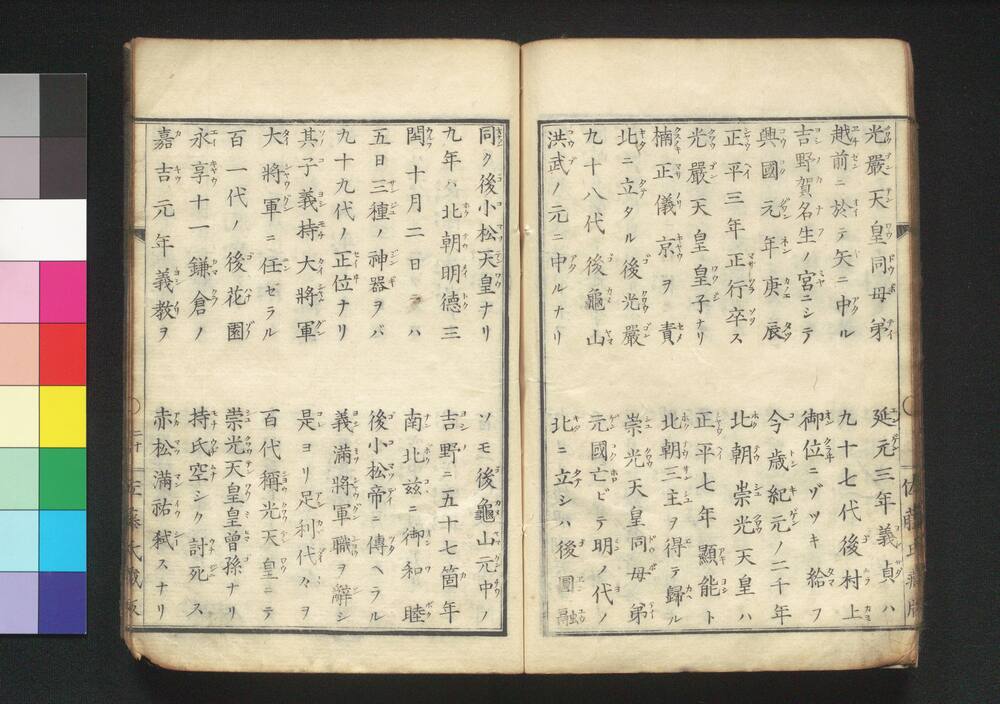 光嚴天皇同母弟
延元三年義貞ハ
越前ニ於テ矢ニ中ル
九十七代後村上
吉野賀名生ノ宮ニシテ
御位ニゾツキ給フ
興國元年庚辰
今歳紀元ノ二千年
正平三年正行卒ス
北朝崇光天皇ハ
光嚴天皇皇子ナリ
正平七年顯能ト
楠正儀京ヲ責
北朝三主ヲ得テ歸ル
北ニ立タル後光嚴
崇光天皇同母弟
九十八代後龜山
元國亡ビテ明ノ代ノ
洪武ノ元ニ中ルナリ
北ニ立シハ後圓融
同ク後小松天皇ナリ
ソモ後龜山元中ノ
九年ハ北朝明德三
吉野ニ五十七箇年
閏十月二日ニハ
南北茲ニ御和睦
五日三種ノ神器ヲバ
後小松帝ニ傳ヘラル
九十九代ノ正位ナリ
義滿將軍職ヲ辭シ
其子義持大將軍
是ヨリ足利代々ヲ
大將軍ニ任ゼラル
百代稱光天皇ニテ
百一代ノ後花園
崇光天皇皇曾孫ナリ
永享十一鎌倉ノ
持氏空シク討死ス
嘉吉元年義教ヲ
赤松滿祐弑スナリ